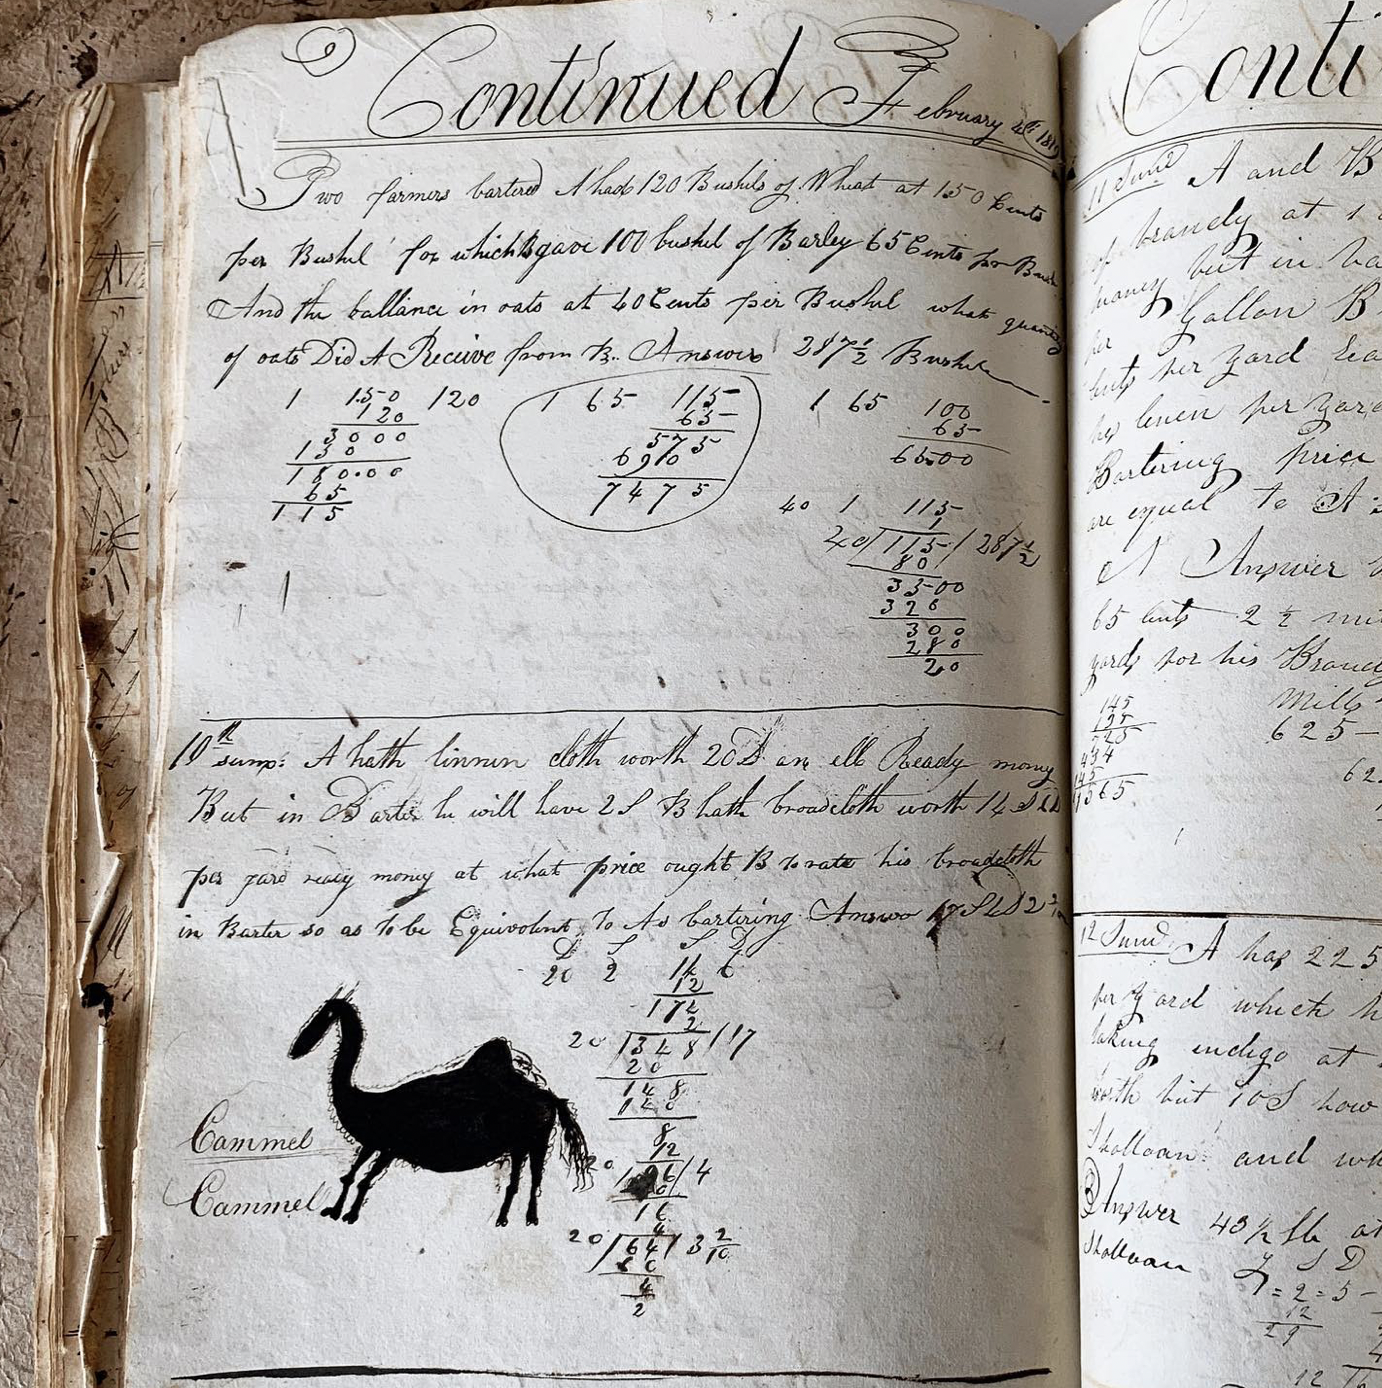 Continued February 4th
Two farmers bartered A had 120 Bushels of Wheat at 150 Cents
per Bushel for which B gave 100 bushel of Barley 65 Cents per Bush
And the ballance in oats at 40 Cents per Bushel what quantity
of oats Did A Receive from B. Answer 287 1/2 Bushel
1 1.50 120
120
3000
150
180.00
65
115
1 65 115
65
575
690
7475
1 65 100
65
65.00
40 1 115
1
40/115/287 1/2
80
3500
320
300
280
20
10th sum: A hath linnen cloth worth 20 D an ell Ready money
But in Barter he will have 2 S B hath broadcloth worth 14 S 6 D
per yard ready money at what price ought B to rate his broadcloth
in Barter so as to be Equivolent To As bartering Answer 17 S 4 D
D S S D
20 2 14 6
12
174
2
20/348/17
20
148
140
8
12
20/96/4
80
16
4
20/64/3 2/10
60
4
2
Cammel
Cammel
Conti
11 Sum A and B
of brandy at 1
money but in ba
per Gallon B
cents per yard
his linen per yard
Bartering price
are equal to A
A Answer
65 cents 2 1/2 mi
yards for his Brandy
Mills
625
145
12 Sum A has 225
per yard which h
taking indigo at
worth but 10 S how
Shalloon and wh
Answer 43 1/2 lb at
Shalloon
S D
7 = 2 = 5
12
29